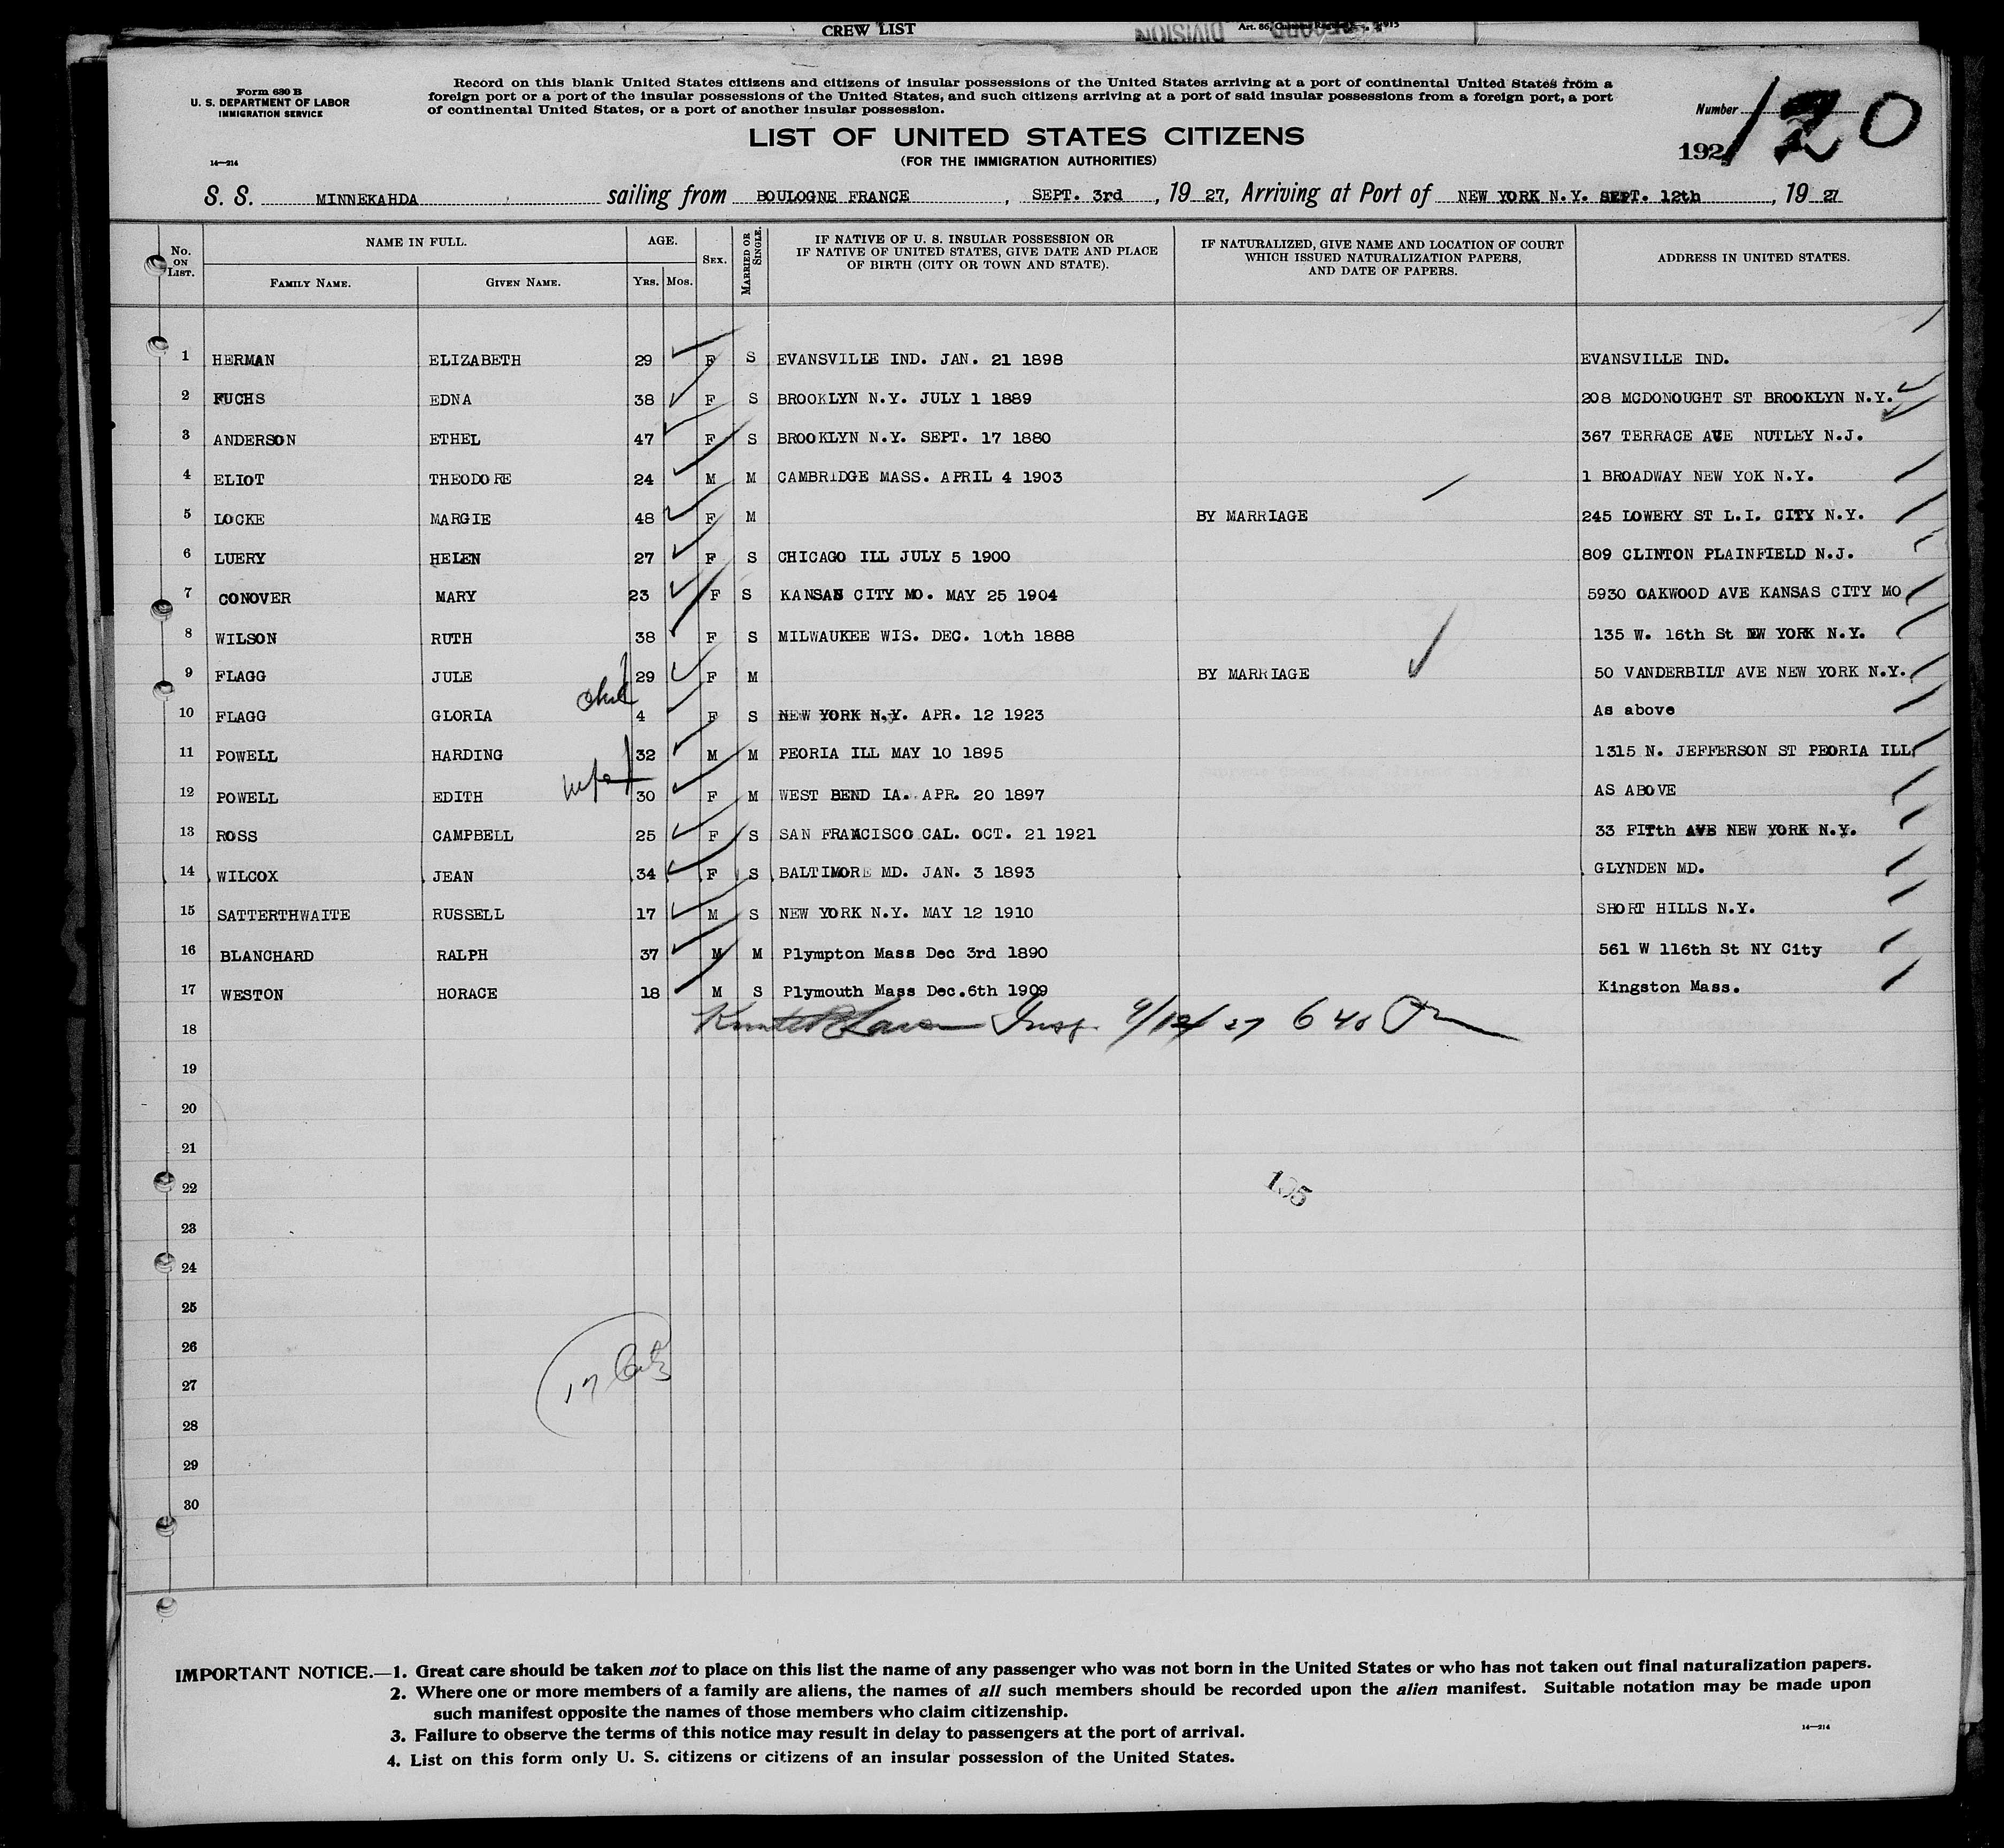 CREW LIST
DIVISION
Form 630 B
U. S. DEPARTMENT OF LABOR
IMMIGRATION SERVICE
14—214
Record on this blank United States citizens and citizens of insular possessions of the United States arriving at a port of continental United States from a
foreign port or a port of the insular possessions of the United States, and such citizens arriving at a port of said insular possessions from a foreign port, a port
of continental United States, or a port of another insular possession.
LIST OF UNITED STATES CITIZENS
(FOR THE IMMIGRATION AUTHORITIES)
Number 120
192
S. S. MINNEKAHDA sailing from BOULOGNE FRANCE, SEPT. 3rd, 19 27, Arriving at Port of NEW YORK N.Y. SEPT. 12th, 19 27
No. ON LIST. NAME IN FULL. AGE. SEX. MARRIED OR SINGLE. IF NATIVE OF U. S. INSULAR POSSESSION OR IF NATIVE OF UNITED STATES, GIVE DATE AND PLACE OF BIRTH (CITY OR TOWN AND STATE). IF NATURALIZED, GIVE NAME AND LOCATION OF COURT WHICH ISSUED NATURALIZATION PAPERS, AND DATE OF PAPERS. ADDRESS IN UNITED STATES.
FAMILY NAME. GIVEN NAME. YRS. MOS.
1 HERMAN ELIZABETH 29 F S EVANSVILLE IND. JAN. 21 1898 EVANSVILLE IND.
2 FUCHS EDNA 38 F S BROOKLYN N.Y. JULY 1 1889 208 MCDONOUGHT ST BROOKLYN N.Y.
3 ANDERSON ETHEL 47 F S BROOKLYN N.Y. SEPT. 17 1880 367 TERRACE AVE NUTLEY N.J.
4 ELIOT THEODORE 24 M M CAMBRIDGE MASS. APRIL 4 1903 1 BROADWAY NEW YOK N.Y.
5 LOCKE MARGIE 48 F M BY MARRIAGE 245 LOWERY ST L.I. CITY N.Y.
6 LUERY HELEN 27 F S CHICAGO ILL JULY 5 1900 809 CLINTON PLAINFIELD N.J.
7 CONOVER MARY 23 F S KANSAS CITY MO. MAY 25 1904 5930 OAKWOOD AVE KANSAS CITY MO
8 WILSON RUTH 38 F S MILWAUKEE WIS. DEC. 10th 1888 135 W. 16th St NEW YORK N.Y.
9 FLAGG JULE 29 F M BY MARRIAGE 50 VANDERBILT AVE NEW YORK N.Y.
10 FLAGG GLORIA 4 F S NEW YORK N.Y. APR. 12 1923 As above
11 POWELL HARDING 32 M M PEORIA ILL MAY 10 1895 1315 N. JEFFERSON ST PEORIA ILL
wife
12 POWELL EDITH 30 F M WEST BEND IA. APR. 20 1897 AS ABOVE
13 ROSS CAMPBELL 25 F S SAN FRANCISCO CAL. OCT. 21 1921 33 FITth AVE NEW YORK N.Y.
14 WILCOX JEAN 34 F S BALTIMORE MD. JAN. 3 1893 GLYNDEN MD.
15 SATTERTHWAITE RUSSELL 17 M S NEW YORK N.Y. MAY 12 1910 SHORT HILLS N.Y.
16 BLANCHARD RALPH 37 M M Plympton Mass Dec 3rd 1890 561 W 116th St NY City
17 WESTON HORACE 18 M S Plymouth Mass Dec.6th 1909 Kingston Mass.
18 Insp. 9/12/27 6 40
19
20
21
22
23
24
25
26
27
28
29
30
17
IMPORTANT NOTICE.—1. Great care should be taken not to place on this list the name of any passenger who was not born in the United States or who has not taken out final naturalization papers.
2. Where one or more members of a family are aliens, the names of all such members should be recorded upon the alien manifest. Suitable notation may be made upon
such manifest opposite the names of those members who claim citizenship.
3. Failure to observe the terms of this notice may result in delay to passengers at the port of arrival.
14—214
4. List on this form only U. S. citizens or citizens of an insular possession of the United States.